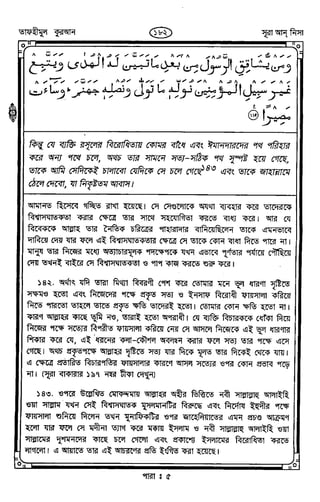 তাফহীমুল কুরআন
১৮২
সূরা আন্ নিসা
وَمَنْ يُّشَاقِقِ الرَّسُوْلَ مِنْۢ بَعْدِ مَا تَبَيَّنَ لَهُ الْهُدٰى وَيَتَّبِعْ
غَيْرَ سَبِيْلِ الْمُؤْمِنِيْنَ نُوَلِّهٖ مَا تَوَلّٰى وَنُصْلِهٖ جَهَنَّمَ ؕ وَسَآءَتْ
مَصِيْرًا
কিন্তু যে ব্যক্তি রসূলের বিরোধিতায় কোমর বাঁধে এবং ঈমানদারদের পথ পরিহার
করে অন্য পথে চলে, অথচ তার সামনে সত্য-সঠিক পথ সুস্পষ্ট হয়ে গেছে,
তাকে আমি সেদিকেই চালাবো যেদিকে সে চলে গেছে১৪৩ এবং তাকে জাহান্নামে
ঠেলে দেবো, যা নিকৃষ্টতম আবাস।
আমানত হিসেবে গচ্ছিত রাখা হয়েছে। সে সেগুলোকে অযথা ব্যবহার করে তাদেরকে
বিশ্বাসঘাতকতা করার ক্ষেত্রে তার সাথে সহযোগিতা করতে বাধ্য করে। আর যে
বিবেককে আল্লাহ তার নৈতিক চরিত্রের পাহারাদার বানিয়েছিলেন তাকে এমনভাবে
দাবিয়ে দেয় যার ফলে এই বিশ্বাসঘাতকতার ক্ষেত্রে সে তাকে কোন বাধা দিতে পারে না।
মানুষ তার নিজের মধ্যে অত্যাচারমূলক পদক্ষেপকে যখন এভাবে পূর্ণতার পর্যায়ে পৌঁছিয়ে
দেয় তখনই বাইরে সে বিশ্বাসঘাতকতা ও পাপ কাজ করতে শুরু করে।
১৪২. অর্থাৎ যদি তারা মিথ্যা বিবরণী পেশ করে তোমার মনে ভুল ধারণা সৃষ্টিতে
সক্ষমও হতো এবং নিজেদের পক্ষে প্রকৃত সত্য ও ইনসাফ বিরোধী ফায়সালা করিয়ে
নিতে পারতো তাহলে তাতে প্রকৃত ক্ষতি তাদেরই হতো। তোমার কোন ক্ষতি হতো না।
কারণ আল্লাহর কাছে তুমি নও, তারাই হতো অপরাধী। যে ব্যক্তি বিচারককে ধোঁকা দিয়ে
নিজের পক্ষে সত্যের বিপরীত ফায়সালা করিয়ে নেয় সে আসলে নিজেকে এই ভুল ধারণার
শিকার করে যে, এই ধরনের কলা-কৌশল অবলম্বন করার ফলে সত্য তার পক্ষে এসে
গেছে। অথচ প্রকৃতপক্ষে আল্লাহর দৃষ্টিতে সত্য যার দিকে মূলত তার দিকেই থেকে যায়।
এ ক্ষেত্রে প্রতারিত বিচারপতির ফায়সালার কারণে আসল সত্যের ওপর কোন প্রভাব পড়ে
না। (সূরা বাকারার ১৯৭ নম্বর টীকা দেখুন)
১৪৩. ওপরে উল্লেখিত মোকদ্দমায় আল্লাহর অহীর ভিত্তিতে নবী সাল্লাল্লাহু আলাইহি
ওয়া সাল্লাম যখন সেই বিশ্বাসঘাতক মুসলমানটির বিরুদ্ধে এবং নির্দোষ ইহুদীর পক্ষে
ফায়সালা শুনিয়ে দিলেন তখন মুনাফিকটির ওপর জাহেলিয়াতের এমন প্রচণ্ড আক্রমণ
হলো যার ফলে সে মদীনা ত্যাগ করে মক্কায় ইসলাম ও নবী সাল্লাল্লাহু আলাইহি ওয়া
সাল্লামের দুশমনদের কাছে চলে গেলো এবং প্রকাশ্যে ইসলামের বিরোধিতা করতে
লাগলো। এ আয়াতে তার এই আচরণের প্রতি ইংগিত করা হয়েছে।
পারা : ৫